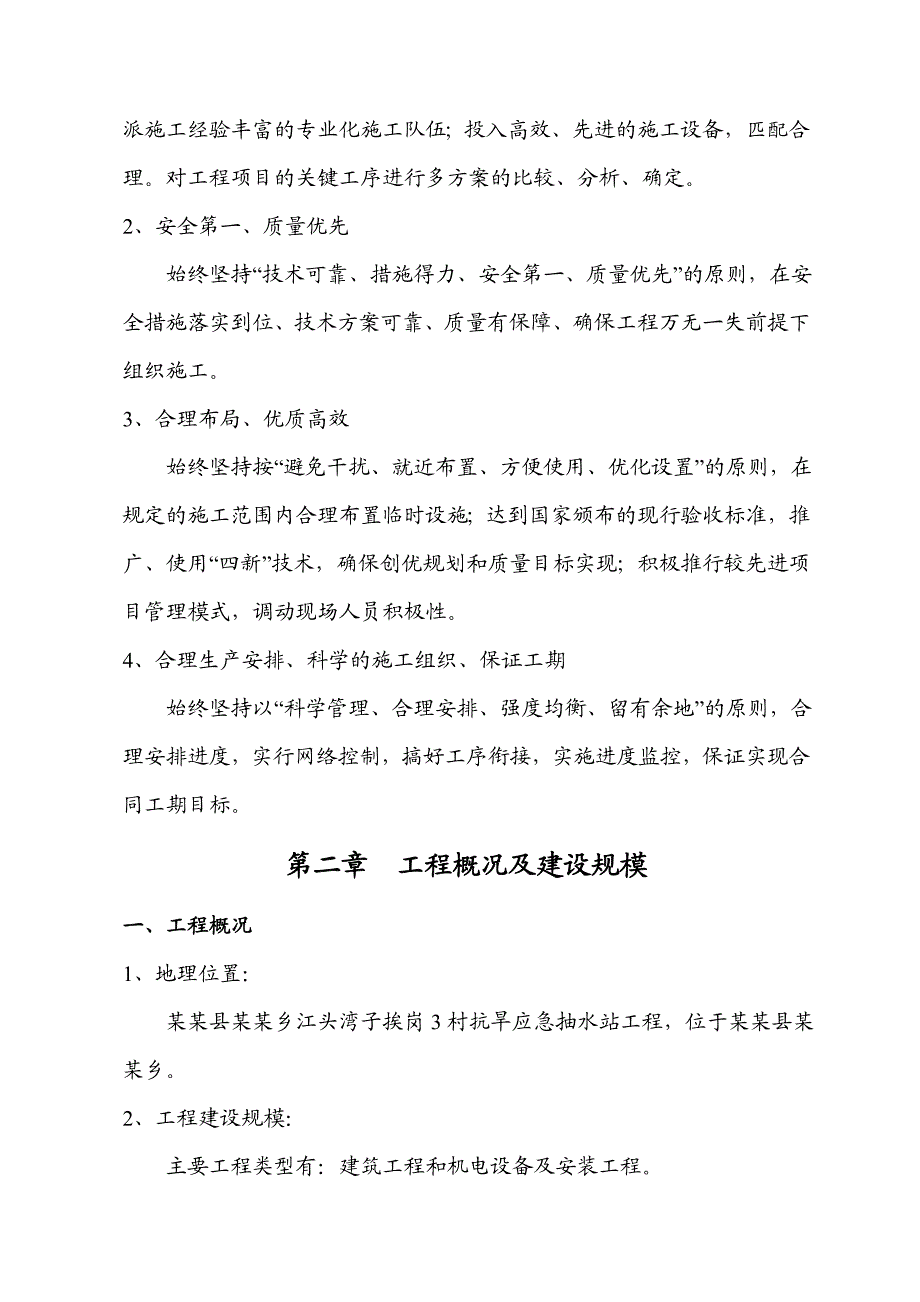 派施工经验丰富的专业化施工队伍；投入高效、先进的施工设备，匹配合
理。对工程项目的关键工序进行多方案的比较、分析、确定。
2、安全第一、质量优先
始终坚持“技术可靠、措施得力、安全第一、质量优先”的原则，在安
全措施落实到位、技术方案可靠、质量有保障、确保工程万无一失前提下
组织施工。
3、合理布局、优质高效
始终坚持按“避免干扰、就近布置、方便使用、优化设置”的原则，在
规定的施工范围内合理布置临时设施；达到国家颁布的现行验收标准，推
广、使用“四新”技术，确保创优规划和质量目标实现；积极推行较先进项
目管理模式，调动现场人员积极性。
4、合理生产安排、科学的施工组织、保证工期
始终坚持以“科学管理、合理安排、强度均衡、留有余地”的原则，合
理安排进度，实行网络控制，搞好工序衔接，实施进度监控，保证实现合
同工期目标。
第二章　工程概况及建设规模
一、工程概况
1、地理位置：
某某县某某乡江头湾子挨岗 3 村抗旱应急抽水站工程，位于某某县某
某乡。
2、工程建设规模：
主要工程类型有：建筑工程和机电设备及安装工程。